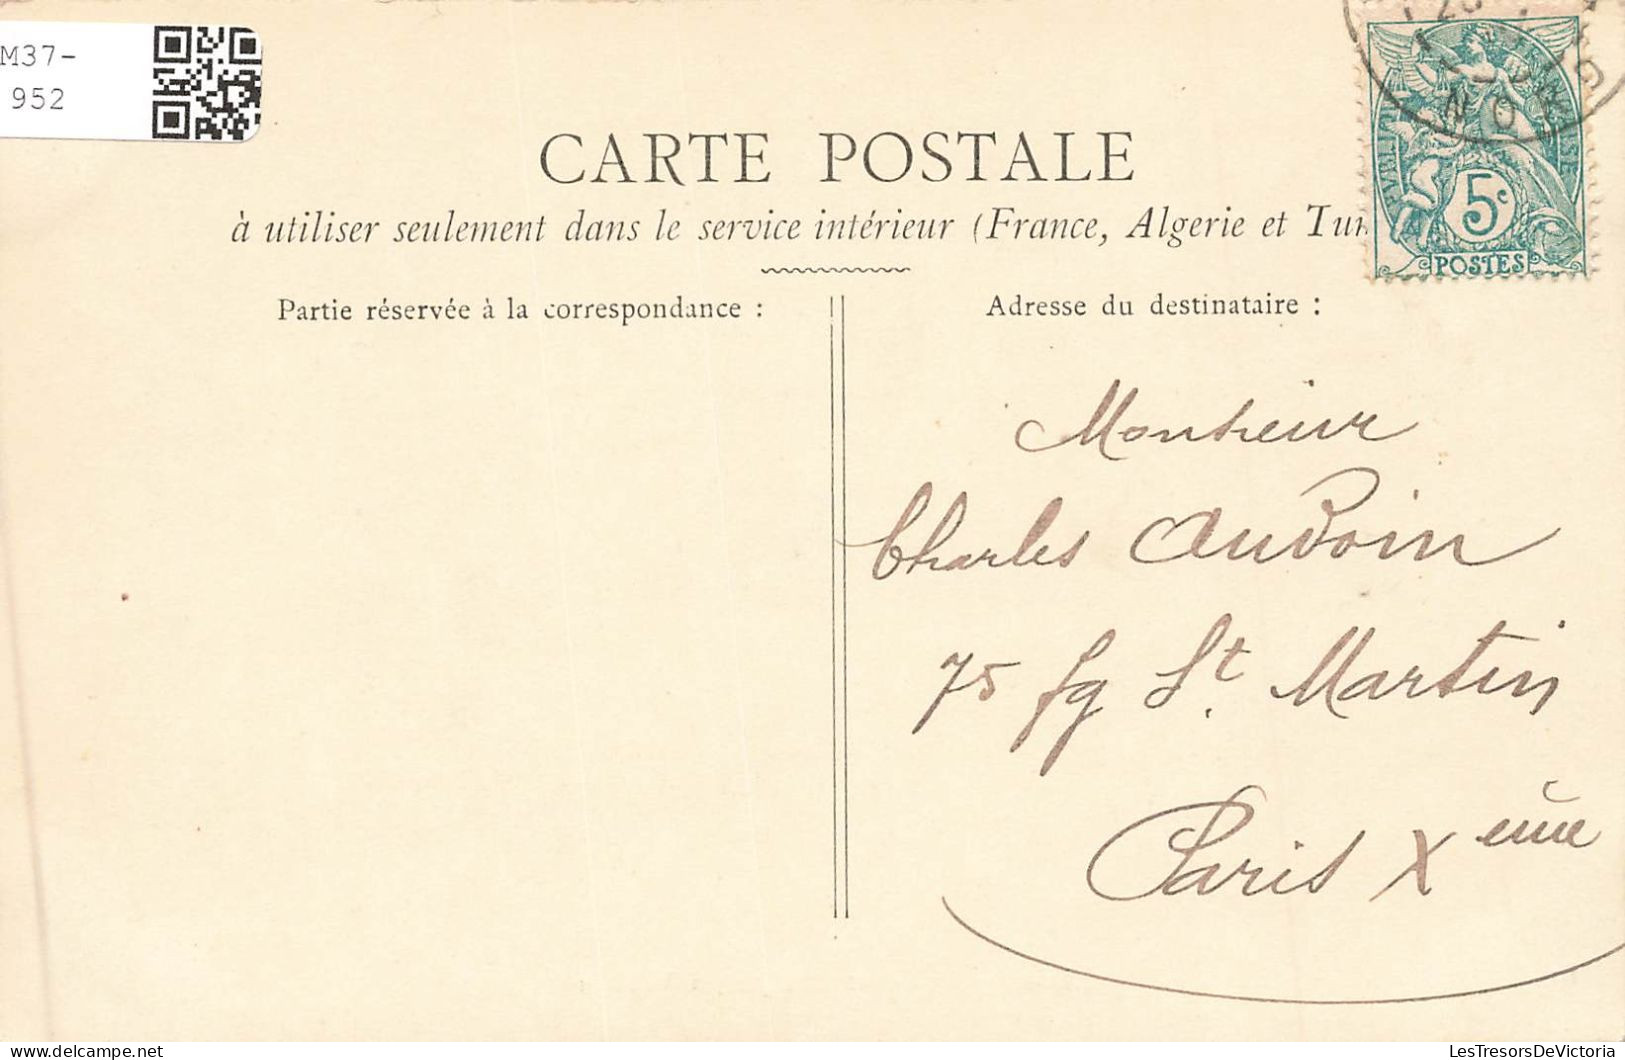 M37-
952
CARTE POSTALE
à utiliser seulement dans le service intérieur (France, Algerie et Tun
5c
POSTES
Partie réservée à la correspondance :
Adresse du destinataire :
Monsieur
Charles Audoin
75 fg St. Martin
Paris Xème
delcampe.net
LesTresorsDeVictoria